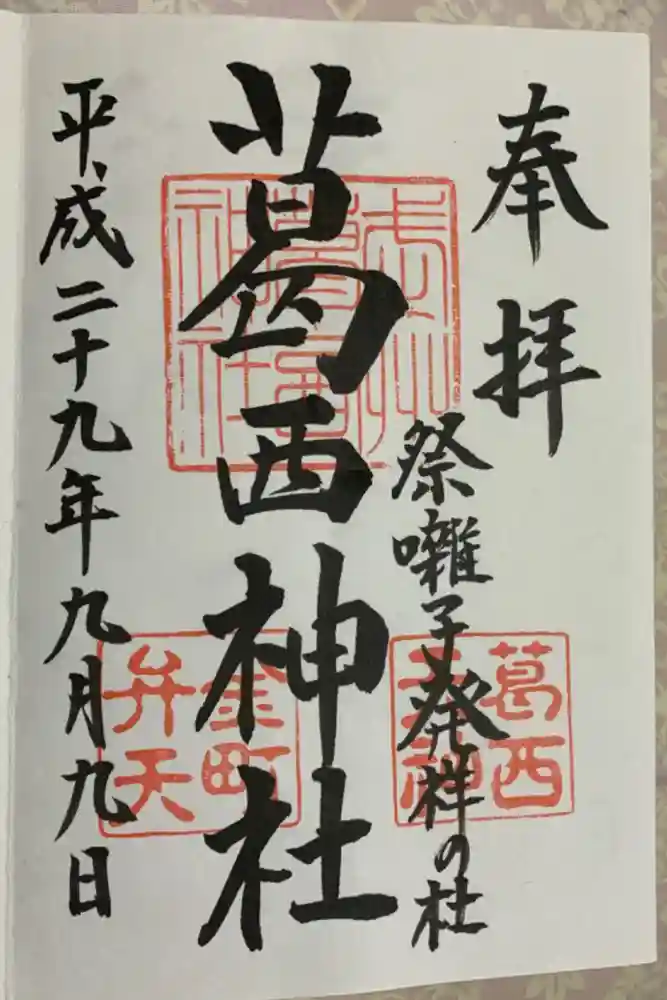 奉拝
祭囃子発祥の杜
葛西神社
平成二十九年九月九日
葛西
金町
弁天